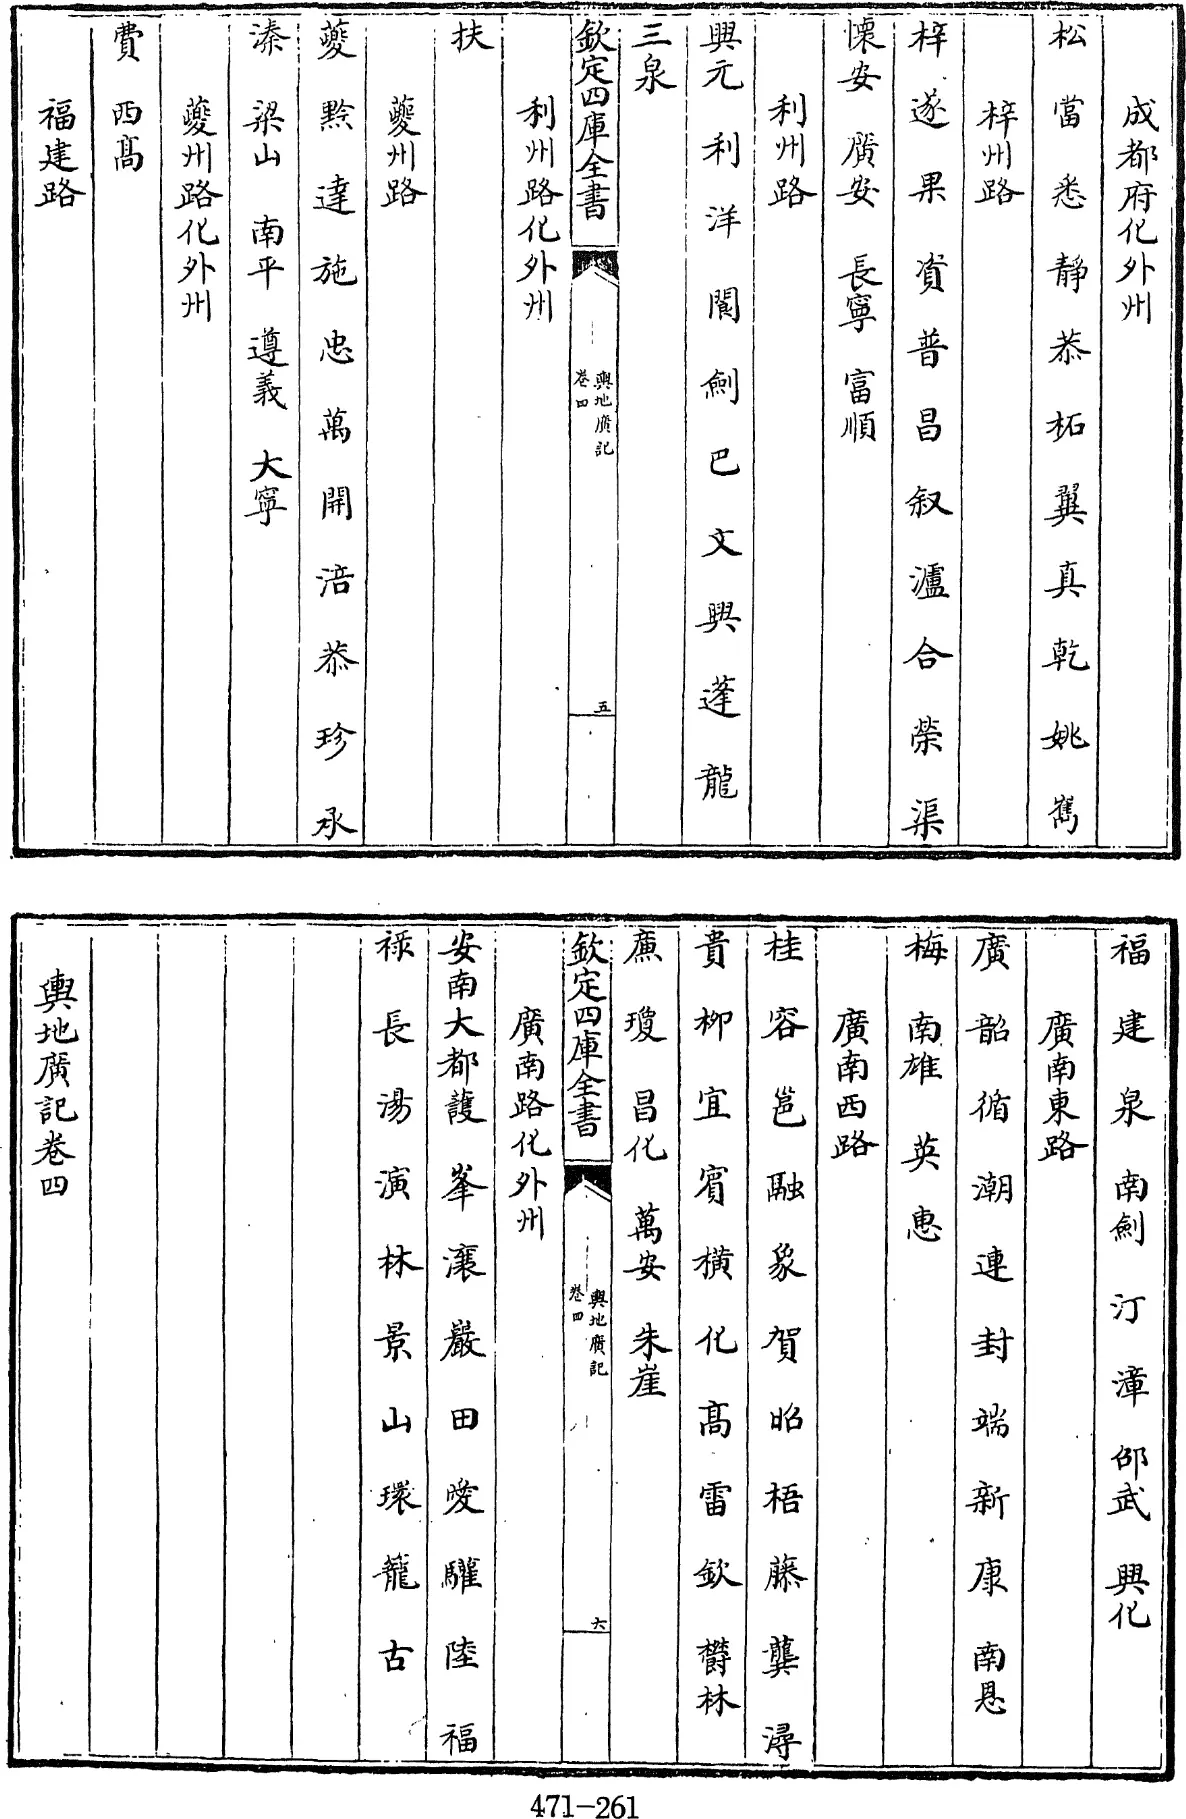 成都府化外州
松 當 悉 靜 恭 柘 翼 真 乾 姚 巂
梓州路
梓 遂 果 資 普 昌 叙 瀘 合 榮 渠
懷安 廣安 長寧 富順
利州路
興元 利 洋 閬 劍 巴 文 興 蓬 龍
三泉
欽定四庫全書
輿地廣記
卷四
五
利州路化外州
扶
夔州路
夔 黔 達 施 忠 萬 開 涪 恭 珍 承
溱 梁山 南平 遵義 大寧
夔州路化外州
費 西髙
福建路
福 建 泉 南劍 汀 漳 邵武 興化
廣南東路
廣 韶 循 潮 連 封 端 新 康 南恩
梅 南雄 英 惠
廣南西路
桂 容 邕 融 象 賀 昭 梧 藤 龔 潯
貴 柳 宜 賓 橫 化 髙 雷 欽 欝林
廉 瓊 昌化 萬安 朱崖
欽定四庫全書
輿地廣記
卷四
六
廣南路化外州
安南大都護 峯 瀼 巖 田 愛 驩 陸 福
禄 長 湯 演 林 景 山 環 籠 古
輿地廣記卷四
471-261